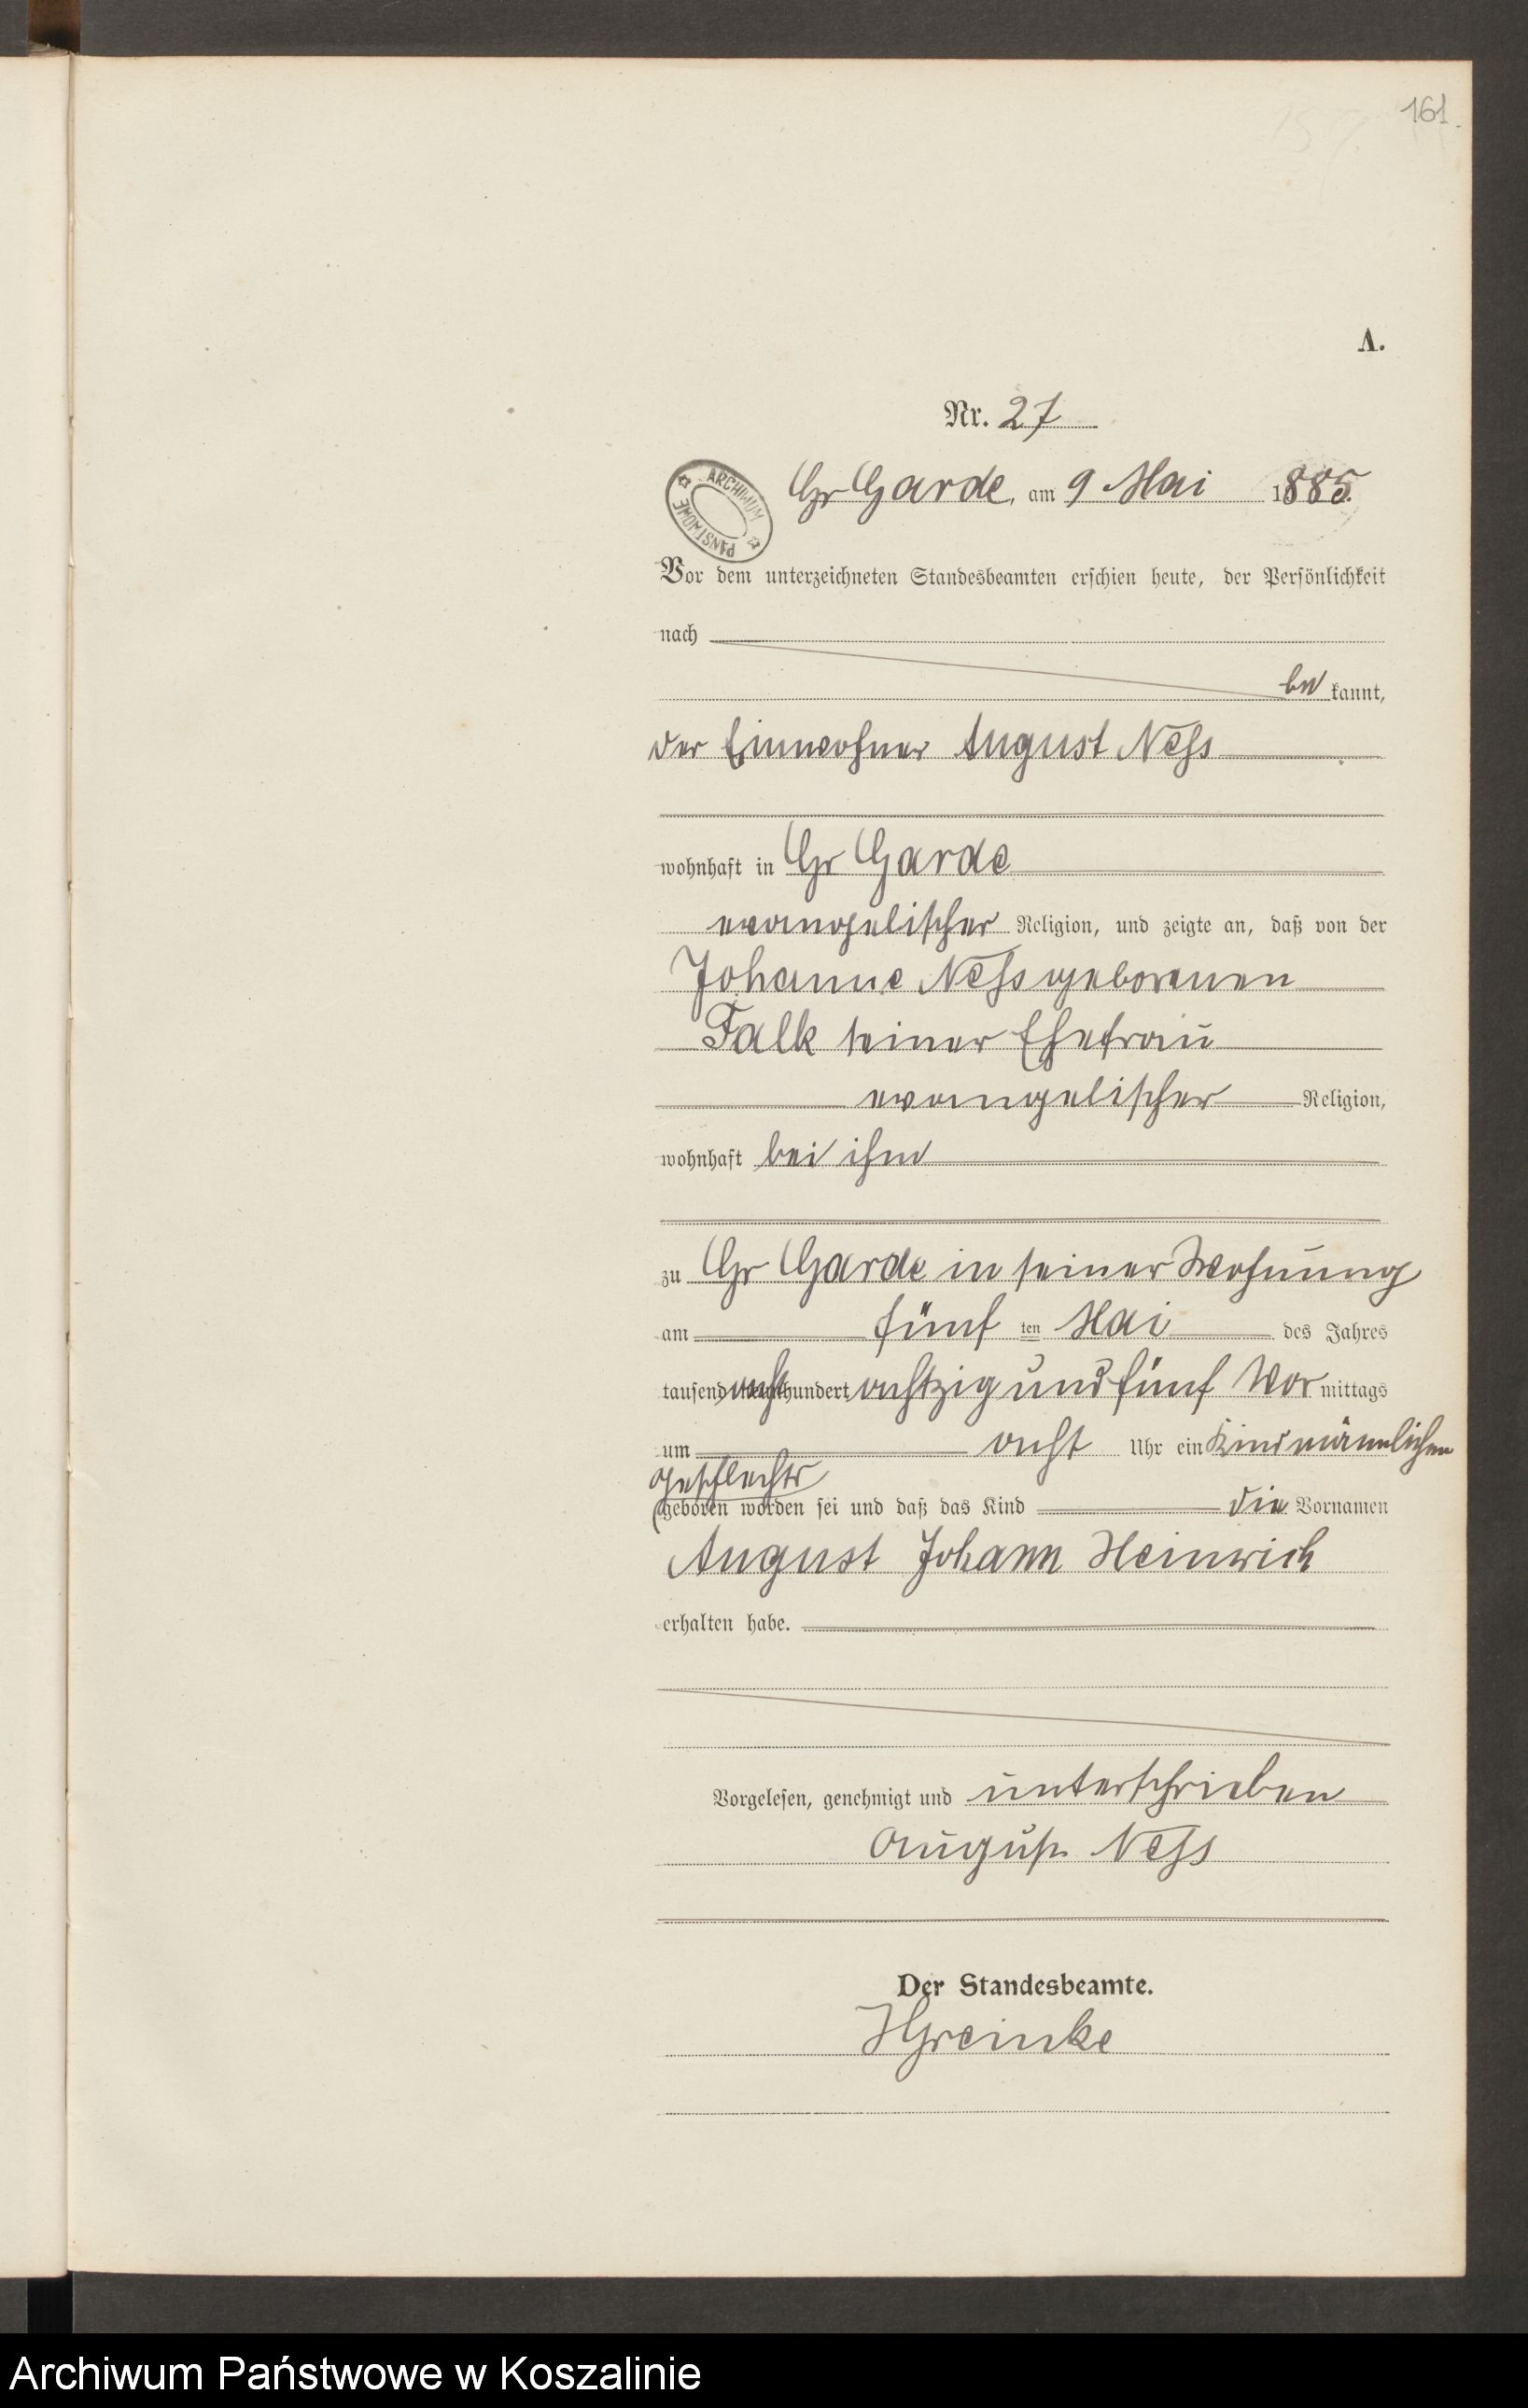 161.
A.
Nr. 27
ARCHIWUM PAŃSTWOWE
Gr Garde, am 9 Mai 1885.
Vor dem unterzeichneten Standesbeamten erschien heute, der Persönlichkeit
nach
be kannt,
der Einwohner August Neſs
wohnhaft in Gr Garde
evangelischer Religion, und zeigte an, daß von der
Johanne Neſs geborenen
Falk seiner Ehefrau
evangelischer Religion,
wohnhaft bei ihm
zu Gr Garde in seiner Wohnung
am fünf ten Mai des Jahres
tausend acht hundert achtzig und fünf Vor mittags
um acht Uhr ein Kind männlichen
Geschlechts
geboren worden sei und daß das Kind die Vornamen
August Johann Heinrich
erhalten habe.
Vorgelesen, genehmigt und unterschrieben
August Neſs
Der Standesbeamte.
HGreinke
Archiwum Państwowe w Koszalinie